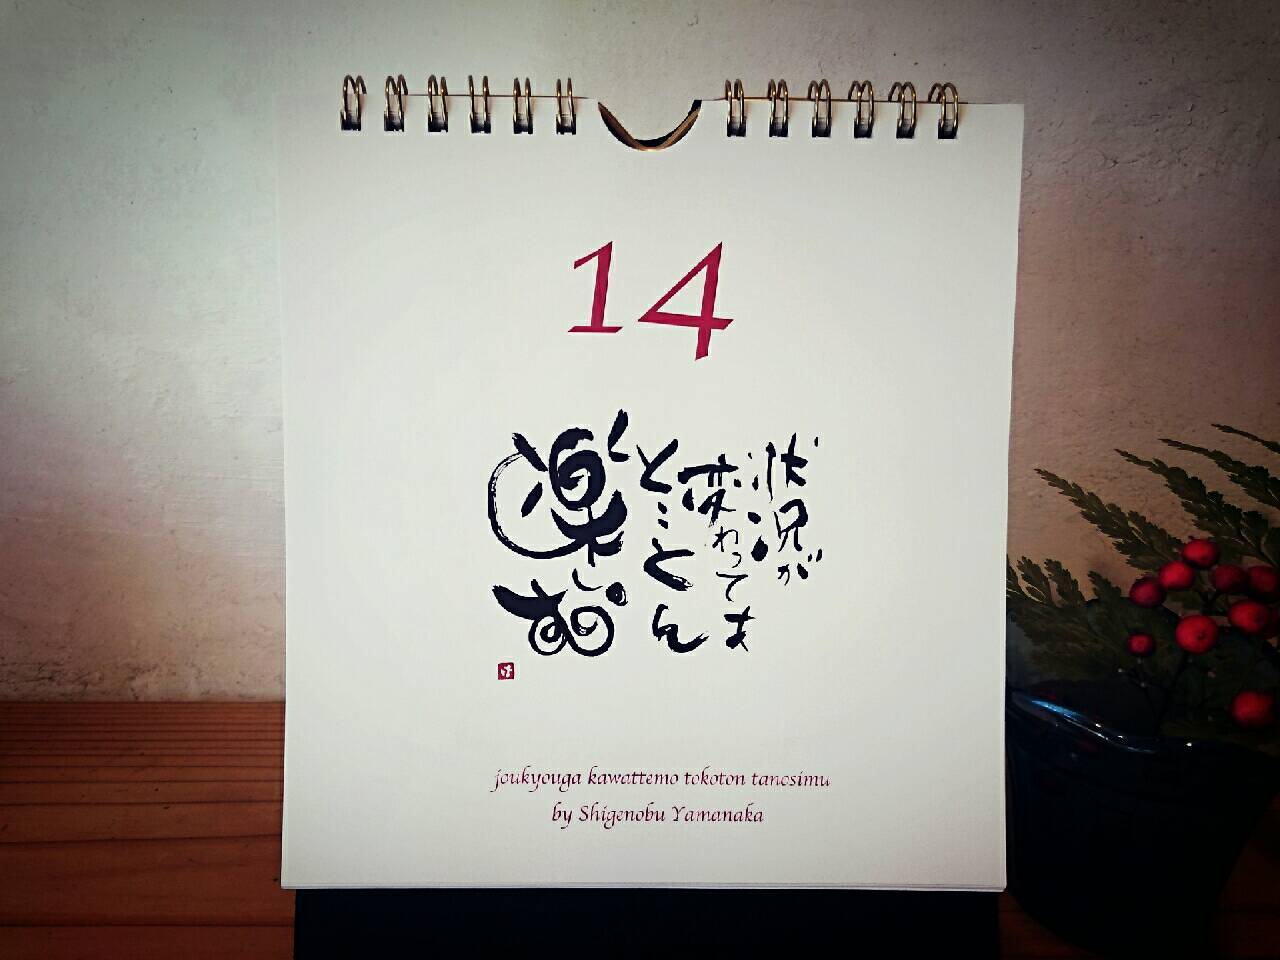 14
状況が
変わっても
とことん
楽しむ
joukyouga kawattemo tokoton tanosimu
by Shigenobu Yamanaka